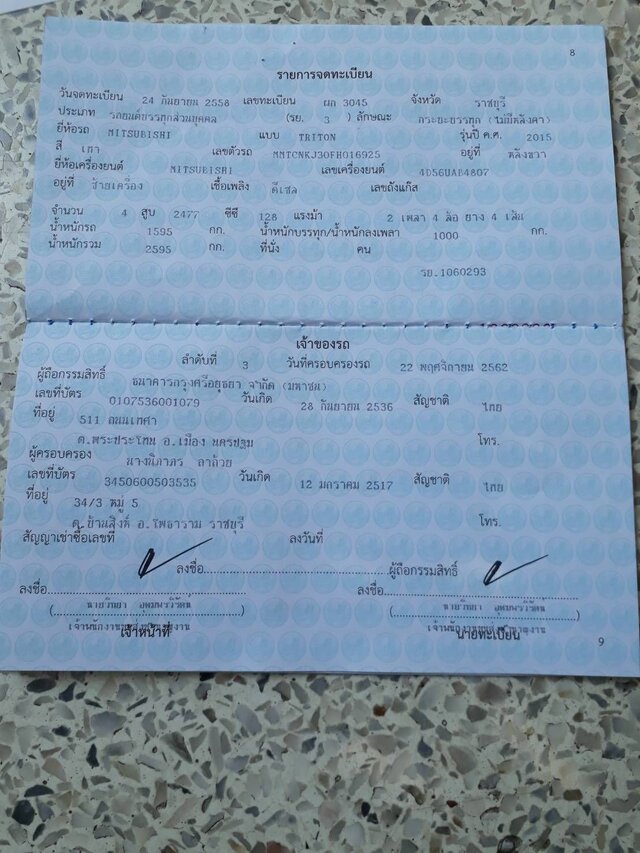 8
รายการจดทะเบียน
วันจดทะเบียน 24 กันยายน 2558 เลขทะเบียน ผก 3045 จังหวัด ราชบุรี
ประเภท รถยนต์บรรทุกส่วนบุคคล (รย. 3 ) ลักษณะ กระบะบรรทุก (ไม่มีหลังคา)
ยี่ห้อรถ MITSUBISHI แบบ TRITON รุ่นปี ค.ศ. 2015
สี เทา เลขตัวรถ MMTCNKJ30FH016925 อยู่ที่ หลังขวา
ยี่ห้อเครื่องยนต์ MITSUBISHI เลขเครื่องยนต์ 4D56UAB4807
อยู่ที่ ซ้ายเครื่อง เชื้อเพลิง ดีเซล เลขถังแก๊ส
จำนวน 4 สูบ 2477 ซีซี 128 แรงม้า 2 เพลา 4 ล้อ ยาง 4 เส้น
น้ำหนักรถ 1595 กก. น้ำหนักบรรทุก/น้ำหนักลงเพลา 1000 กก.
น้ำหนักรวม 2595 กก. ที่นั่ง คน
รย.1060293
เจ้าของรถ
ลำดับที่ 3 วันที่ครอบครองรถ 22 พฤศจิกายน 2562
ผู้ถือกรรมสิทธิ์ ธนาคารกรุงศรีอยุธยา จำกัด (มหาชน)
เลขที่บัตร 0107536001079 วันเกิด 28 กันยายน 2536 สัญชาติ ไทย
ที่อยู่ 511 ถนนเทศา
ต.พระประโทน อ.เมือง นครปฐม โทร.
ผู้ครอบครอง นางนิภาภร
เลขที่บัตร 3450600503535 วันเกิด 12 มกราคม 2517 สัญชาติ ไทย
ที่อยู่ 34/3 หมู่ 5
ต.บ้านสิงห์ อ.โพธาราม ราชบุรี โทร.
สัญญาเช่าซื้อเลขที่ ลงวันที่
ลงชื่อ ผู้ถือกรรมสิทธิ์
ลงชื่อ ลงชื่อ
( นายวิทยา ) ( นายวิทยา )
เจ้าหน้าที่ นายทะเบียน
9